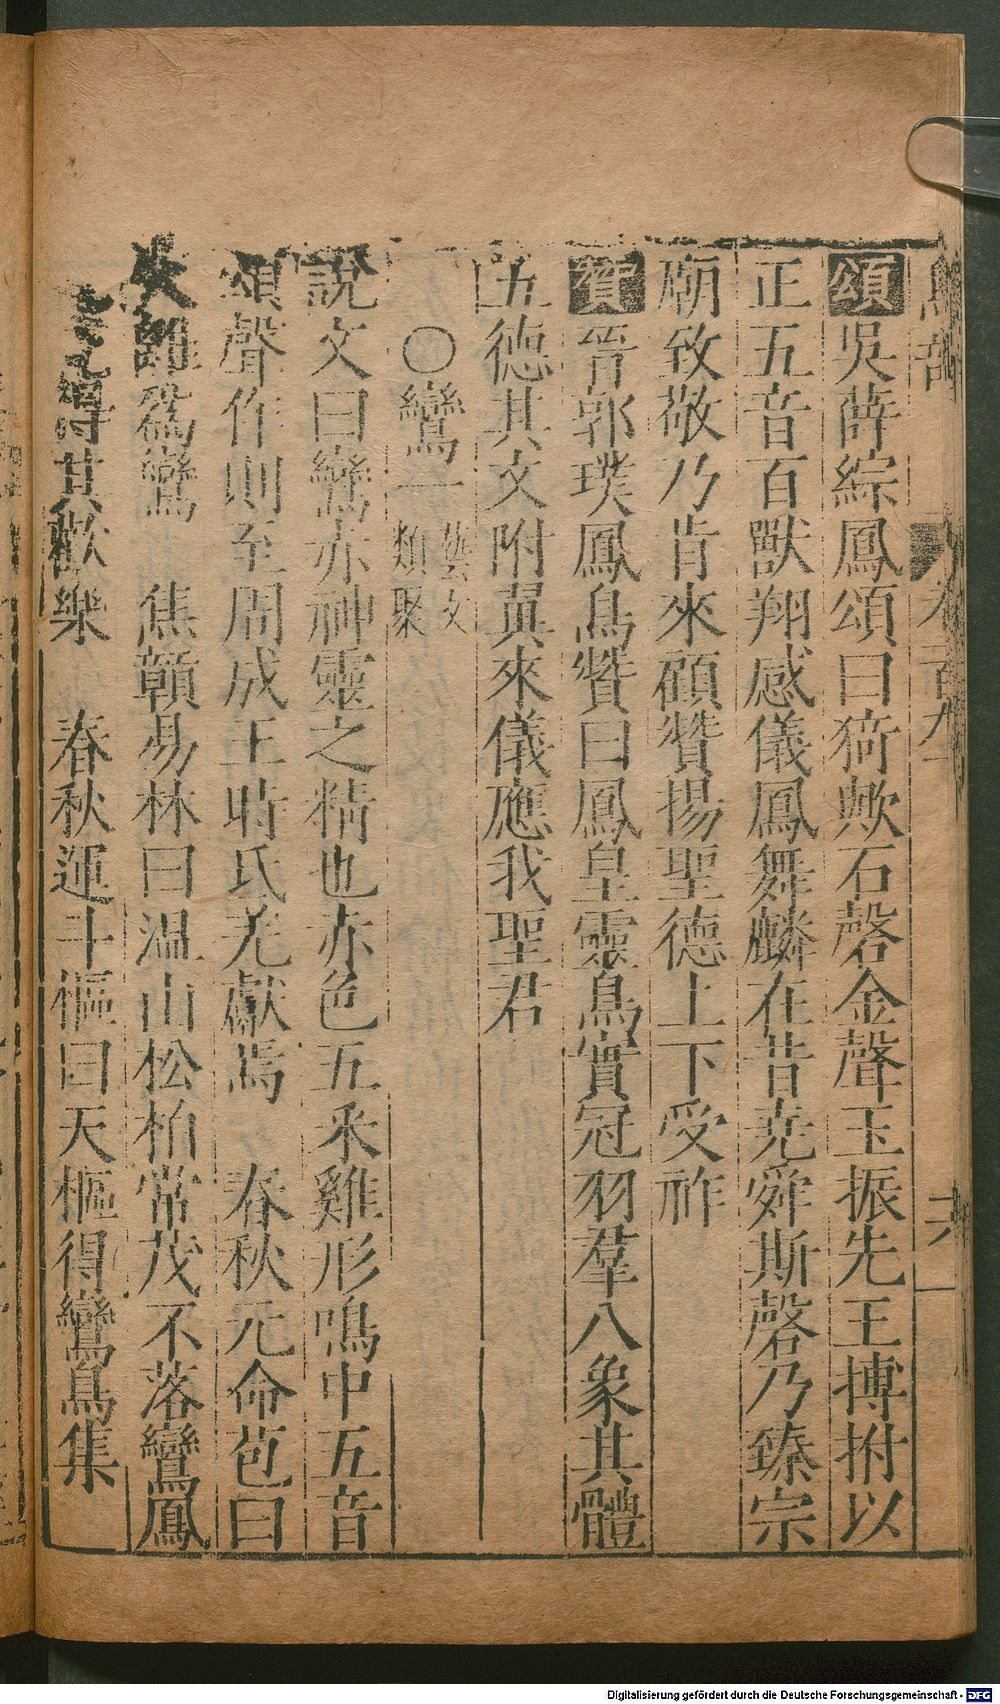 頌吳薛綜鳳頌曰猗歟石磬金聲玉振先王搏拊以
正五音百獸翔感儀鳳舞麟在昔堯舜斯磬乃臻宗
廟致敬乃肯來顧贊揚聖德上下受祚
贊晉郭璞鳳鳥贊曰鳳皇靈鳥實冠羽羣八象其體
五德其文附翼來儀應我聖君
○鸞一藝文類聚
說文曰鸞亦神靈之精也赤色五采雞形鳴中五音
頌聲作則至周成王時氏羌獻焉 春秋元命苞曰
火離爲鸞 焦贛易林曰溫山松柏常茂不落鸞鳳
得其歡樂 春秋運斗樞曰天樞得鸞鳥集
十六
Digitalisierung gefördert durch die Deutsche Forschungsgemeinschaft - DFG